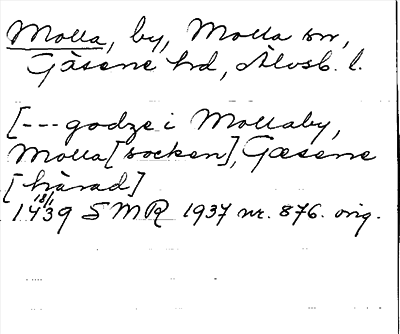 Molla, by, Molla sn,
Gäsene hd, Älvsb. l.
[--- godze i Mollaby,
Molla [socken], Gæsene
[härad]
18/1
1439 SMR 1937 nr. 876. orig.